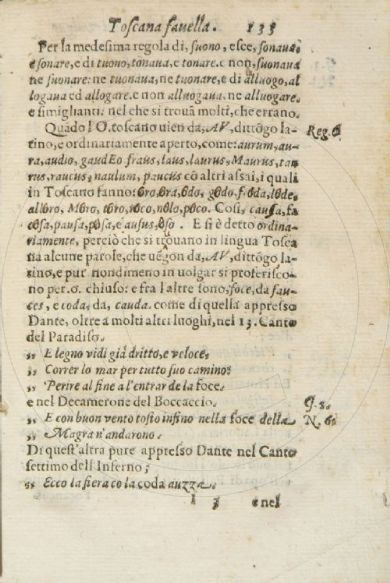 Toscana fauella. 133
Per la medesima regola di, suono, esce, sonaua.
e sonare, e di tuono, tonaua, e tonare. e non, suonaua
ne suonare: ne tuonaua, ne tuonare, e di alluogo, al
logaua ed allogare. e non alluogaua. ne alluogare.
e simiglianti. nel che si trouā molti, che errano.
Quādo l O, toscano uien da, AV, dittōgo la-
tino, e ordinariamente aperto, come: aurum, au-
ra, audio, gaudeo fraus, laus, laurus, Maurus, tau
rus, raucus, naulum, paucus cō altri assai, i quali
in Toscano fanno: oro, ora, odo, godo, froda, lode,
alloro, Moro, toro, roco, nolo, poco. Così, causa,
cosa, pausa, posa, e ausus, oso. E si è detto ordina-
riamente, perciò che si trouano in lingua Tosca
na alcune parole, che uēgon da, AV, dittōgo la-
tino, e pur nondimeno in uolgar si proferisco-
no per. o. chiuso: e fra l altre sono, foce, da fau-
ces, e coda, da, cauda. come di quella appresso
Dante, oltre a molti altri luoghi, nel 13. Canto
del Paradiso.
„ E legno vidi già dritto, e veloce,
„ Correr lo mar per tutto suo camino:
„ Perire al fine al'entrar de la foce.
e nel Decamerone del Boccaccio.
„ E con buon vento tosto infino nella foce della
„ Magra n'andarono.
Di quest'altra pure appresso Dante nel Canto
settimo dell Inferno;
„ Ecco la fiera co la coda auzza.
I 3 e nel
Reg. 6
G. 2.
N. 6.